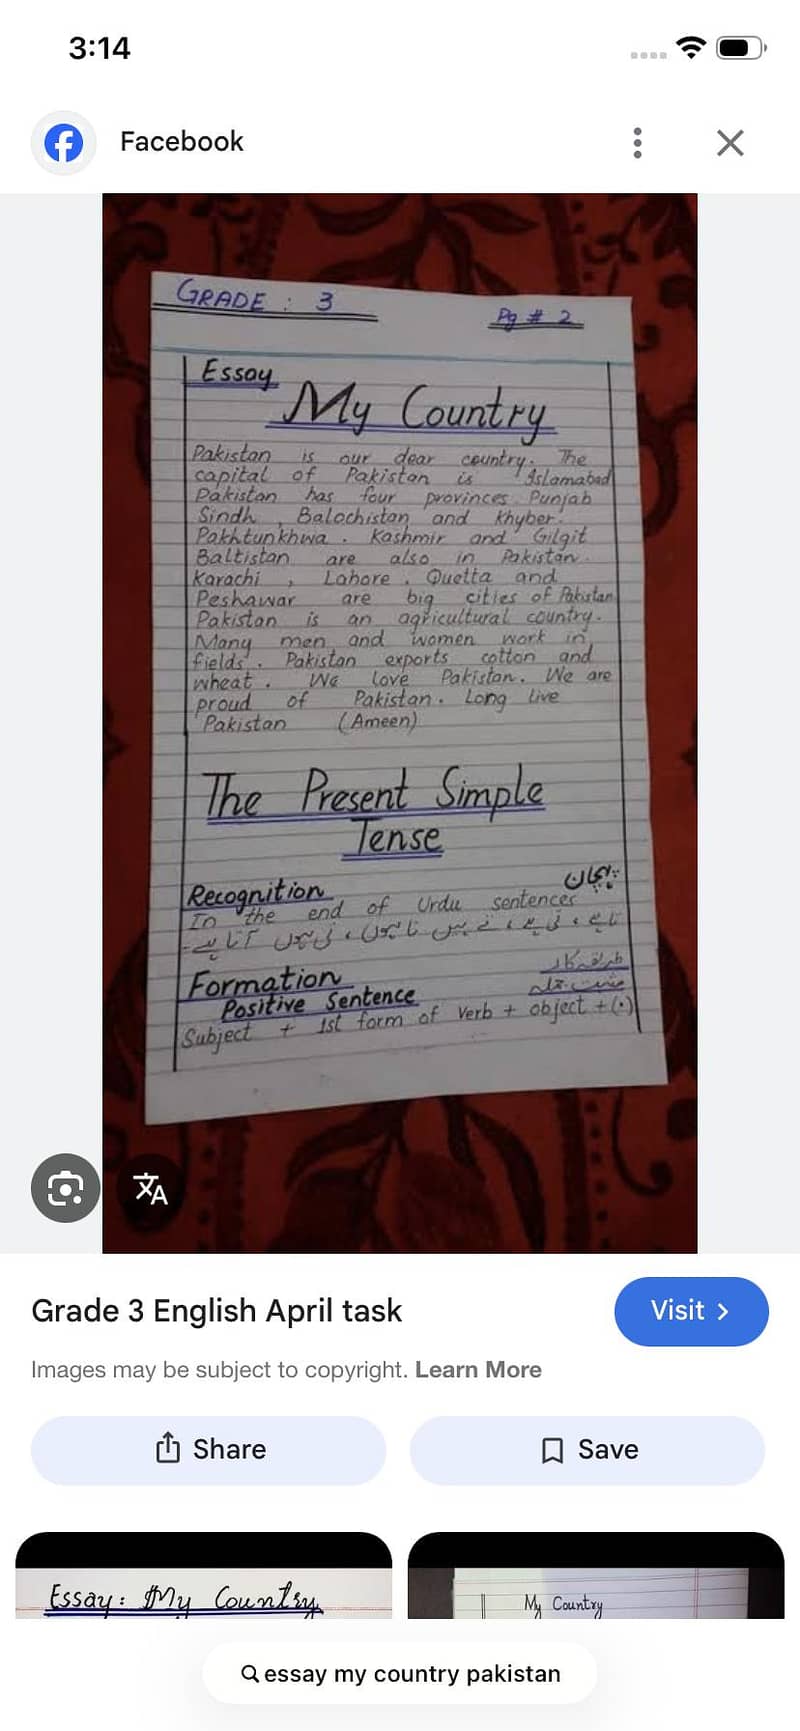 3:14
Facebook
GRADE : 3
Pg # 2
Essay
My Country
Pakistan is our dear country. The
capital of Pakistan is Islamabad
Pakistan has four provinces Punjab
Sindh , Balochistan and Khyber-
Pakhtunkhwa . Kashmir and Gilgit
Baltistan are also in Pakistan.
Karachi , Lahore , Quetta and
Peshawar are big cities of Pakistan
Pakistan is an agricultural country.
Many men and women work in
fields . Pakistan exports cotton and
wheat . We love Pakistan. We are
proud of Pakistan. Long live
Pakistan (Ameen)
The Present Simple
Tense
Recognition پہچان
In the end of Urdu sentences
Formation
Positive Sentence
Subject + 1st form of Verb + object + (.)
Grade 3 English April task
Visit
Images may be subject to copyright. Learn More
Share
Save
Essay: My Country
My Country
essay my country pakistan